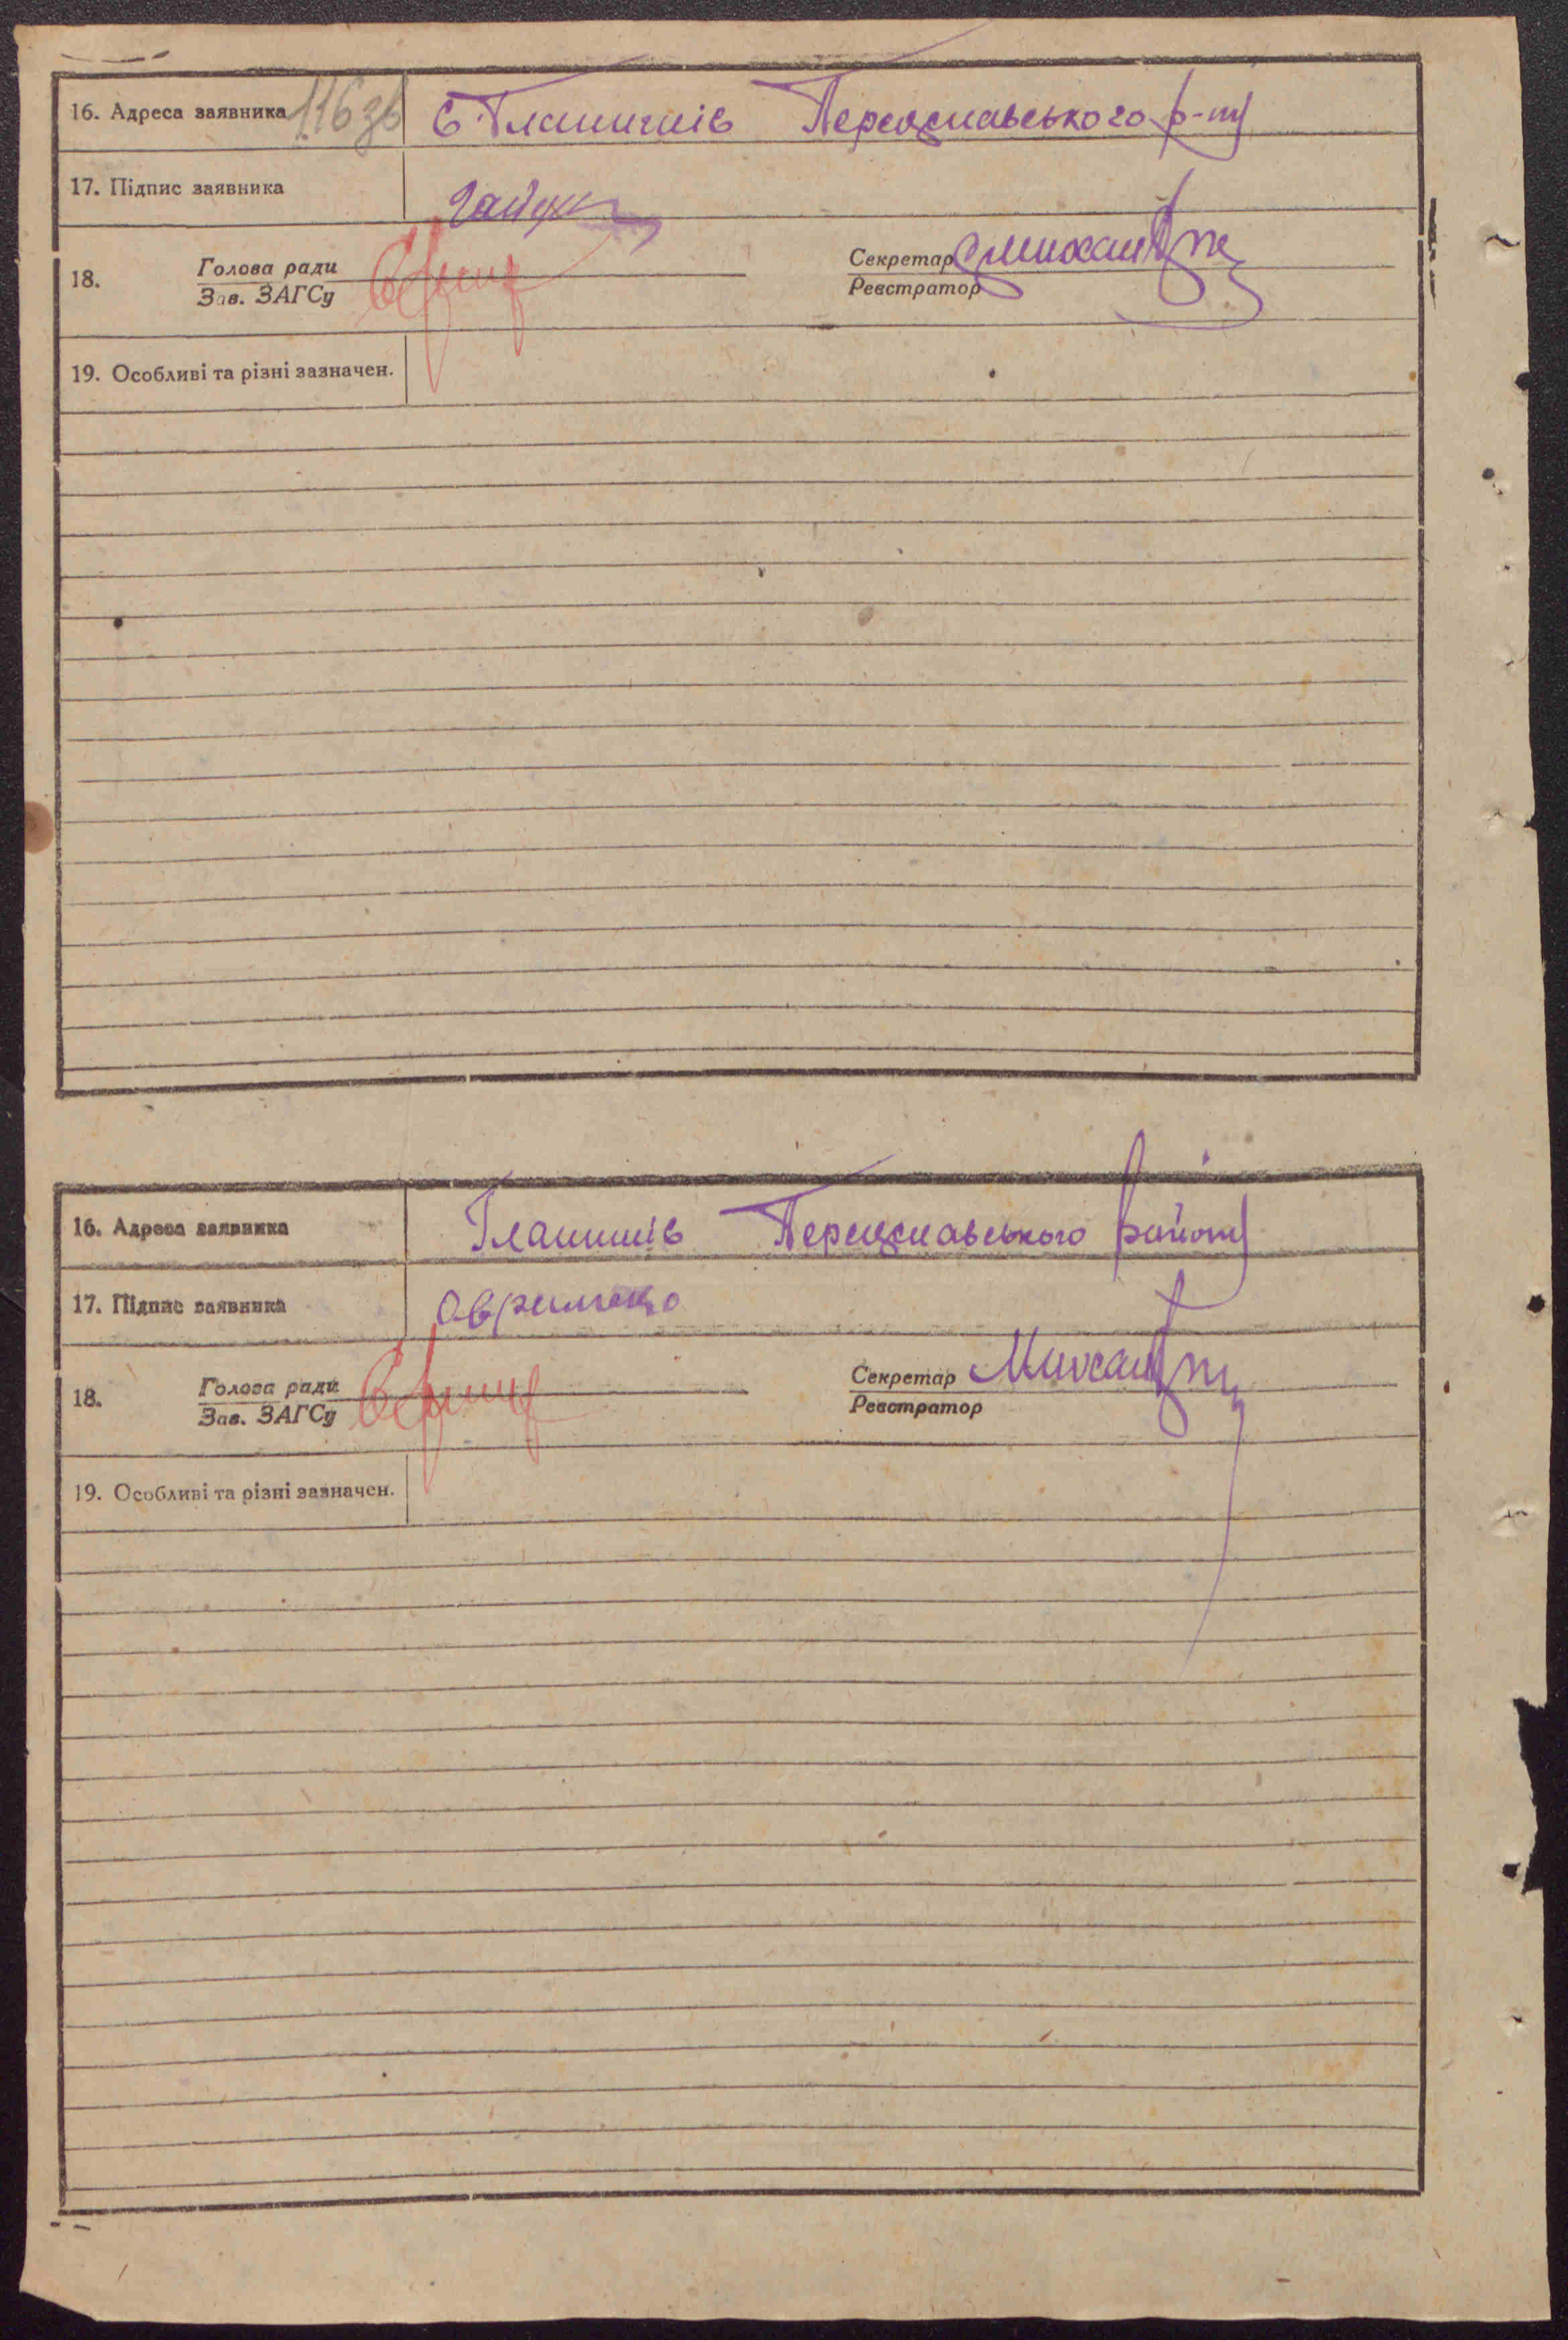 16. Адреса заявника 116 зв С. Гланишів Переяславського р-ну
17. Підпис заявника
18. Голова ради Секретар
Зав. ЗАГСу Реєстратор
19. Особливі та різні зазначен.
16. Адреса заявника Гланишів Переяславського району
17. Підпис заявника
18. Голова ради Секретар
Зав. ЗАГСу Реєстратор
19. Особливі та різні зазначен.